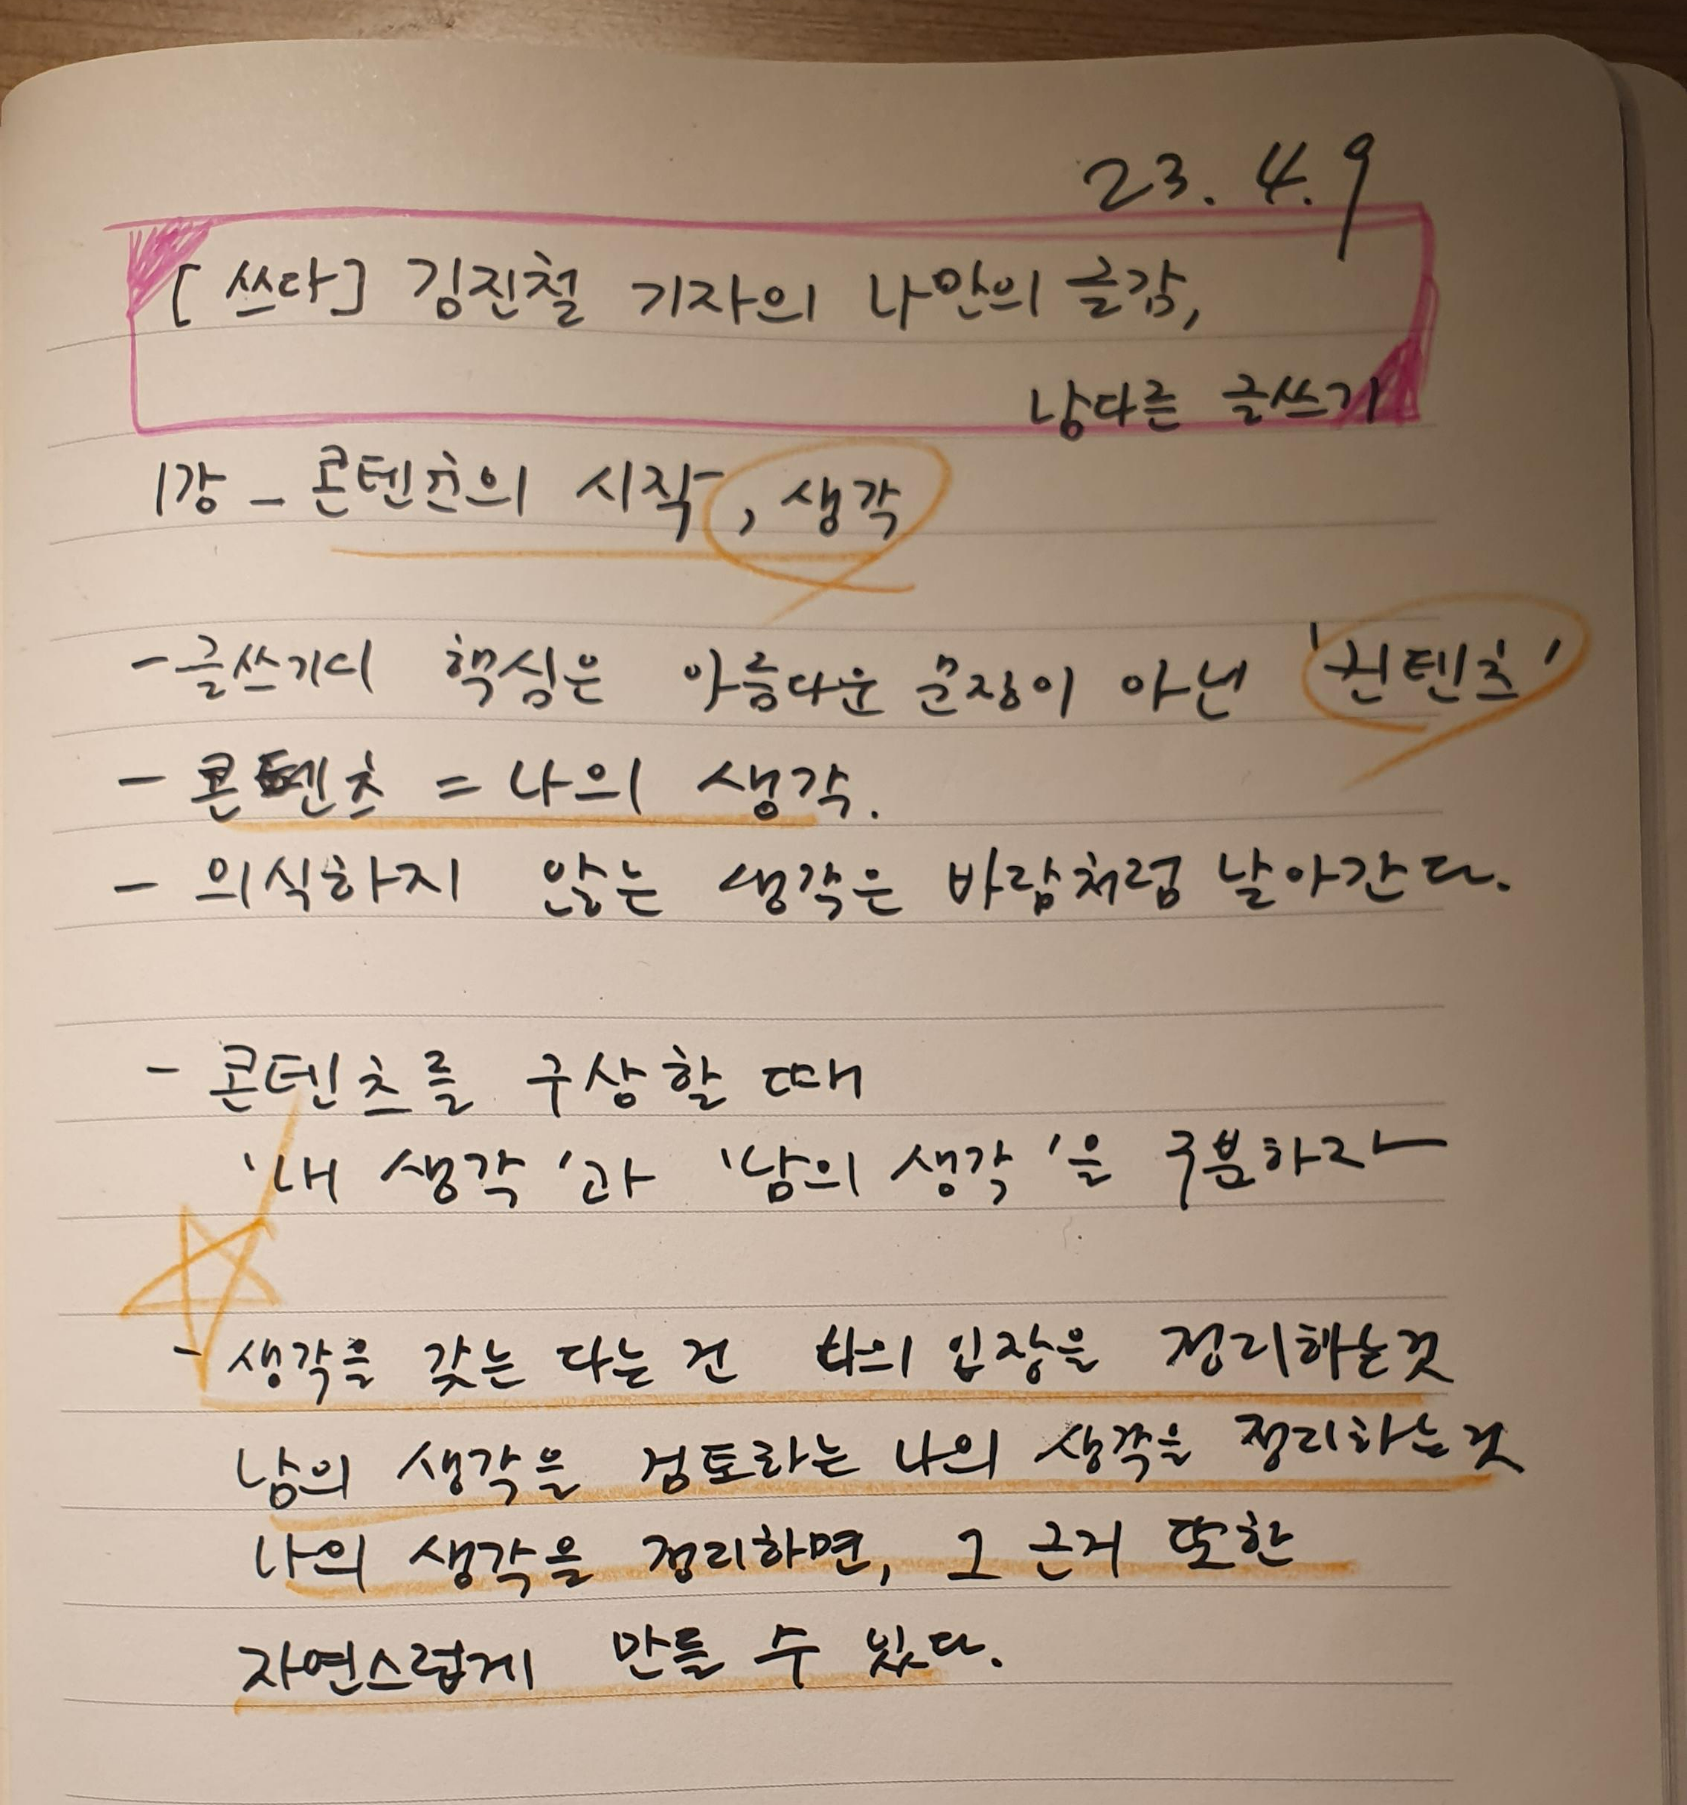 23. 4. 9
[쓰다] 김진철 기자의 나만의 글감,
남다른 글쓰기
1강 - 콘텐츠의 시작, 생각
- 글쓰기의 핵심은 아름다운 문장이 아닌 '컨텐츠'
- 콘텐츠 = 나의 생각.
- 의식하지 않는 생각은 바람처럼 날아간다.
- 콘텐츠를 구상할 때
'내 생각'과 '남의 생각'을 구분하자
- 생각을 갖는 다는 건 나의 입장을 정리하는것
남의 생각을 검토라는 나의 생각을 정리하는것
나의 생각을 정리하면, 그 근거 또한
자연스럽게 만들 수 있다.